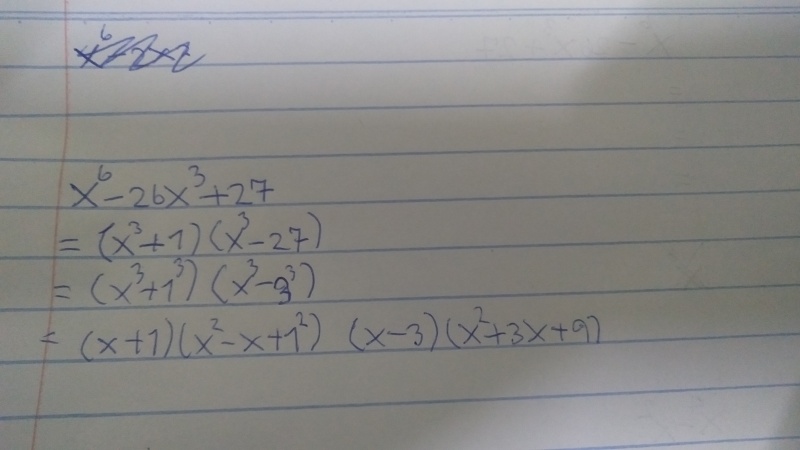 x⁶ - 26x³ + 27
= (x³ + 1)(x³ - 27)
= (x³ + 1³)(x³ - 3³)
= (x + 1)(x² - x + 1²) (x - 3)(x² + 3x + 9)